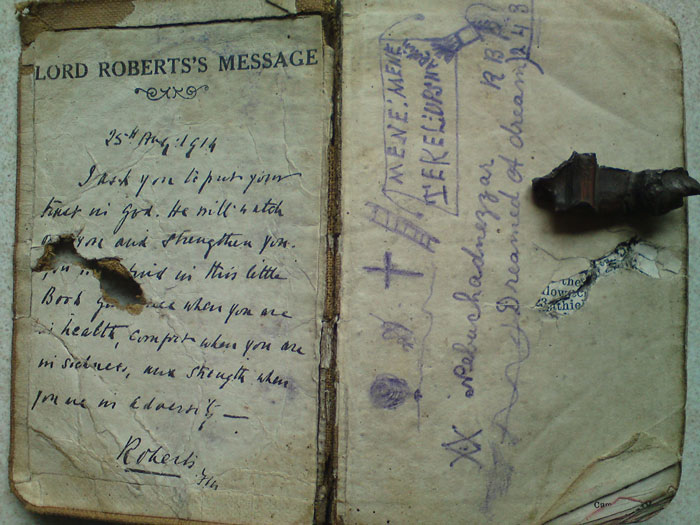 LORD ROBERTS'S MESSAGE
25th Aug: 1914
I ask you to put your
trust in God. He will watch
you and strengthen you.
You in this little
Book when you are
in health, comfort when you are
in sickness, and strength when
you are in adversity
Roberts
F.M.
MENE: MENE
TEKEL: UPHARSIN
XX Nebuchadnezzar
Dreamed A dream
the